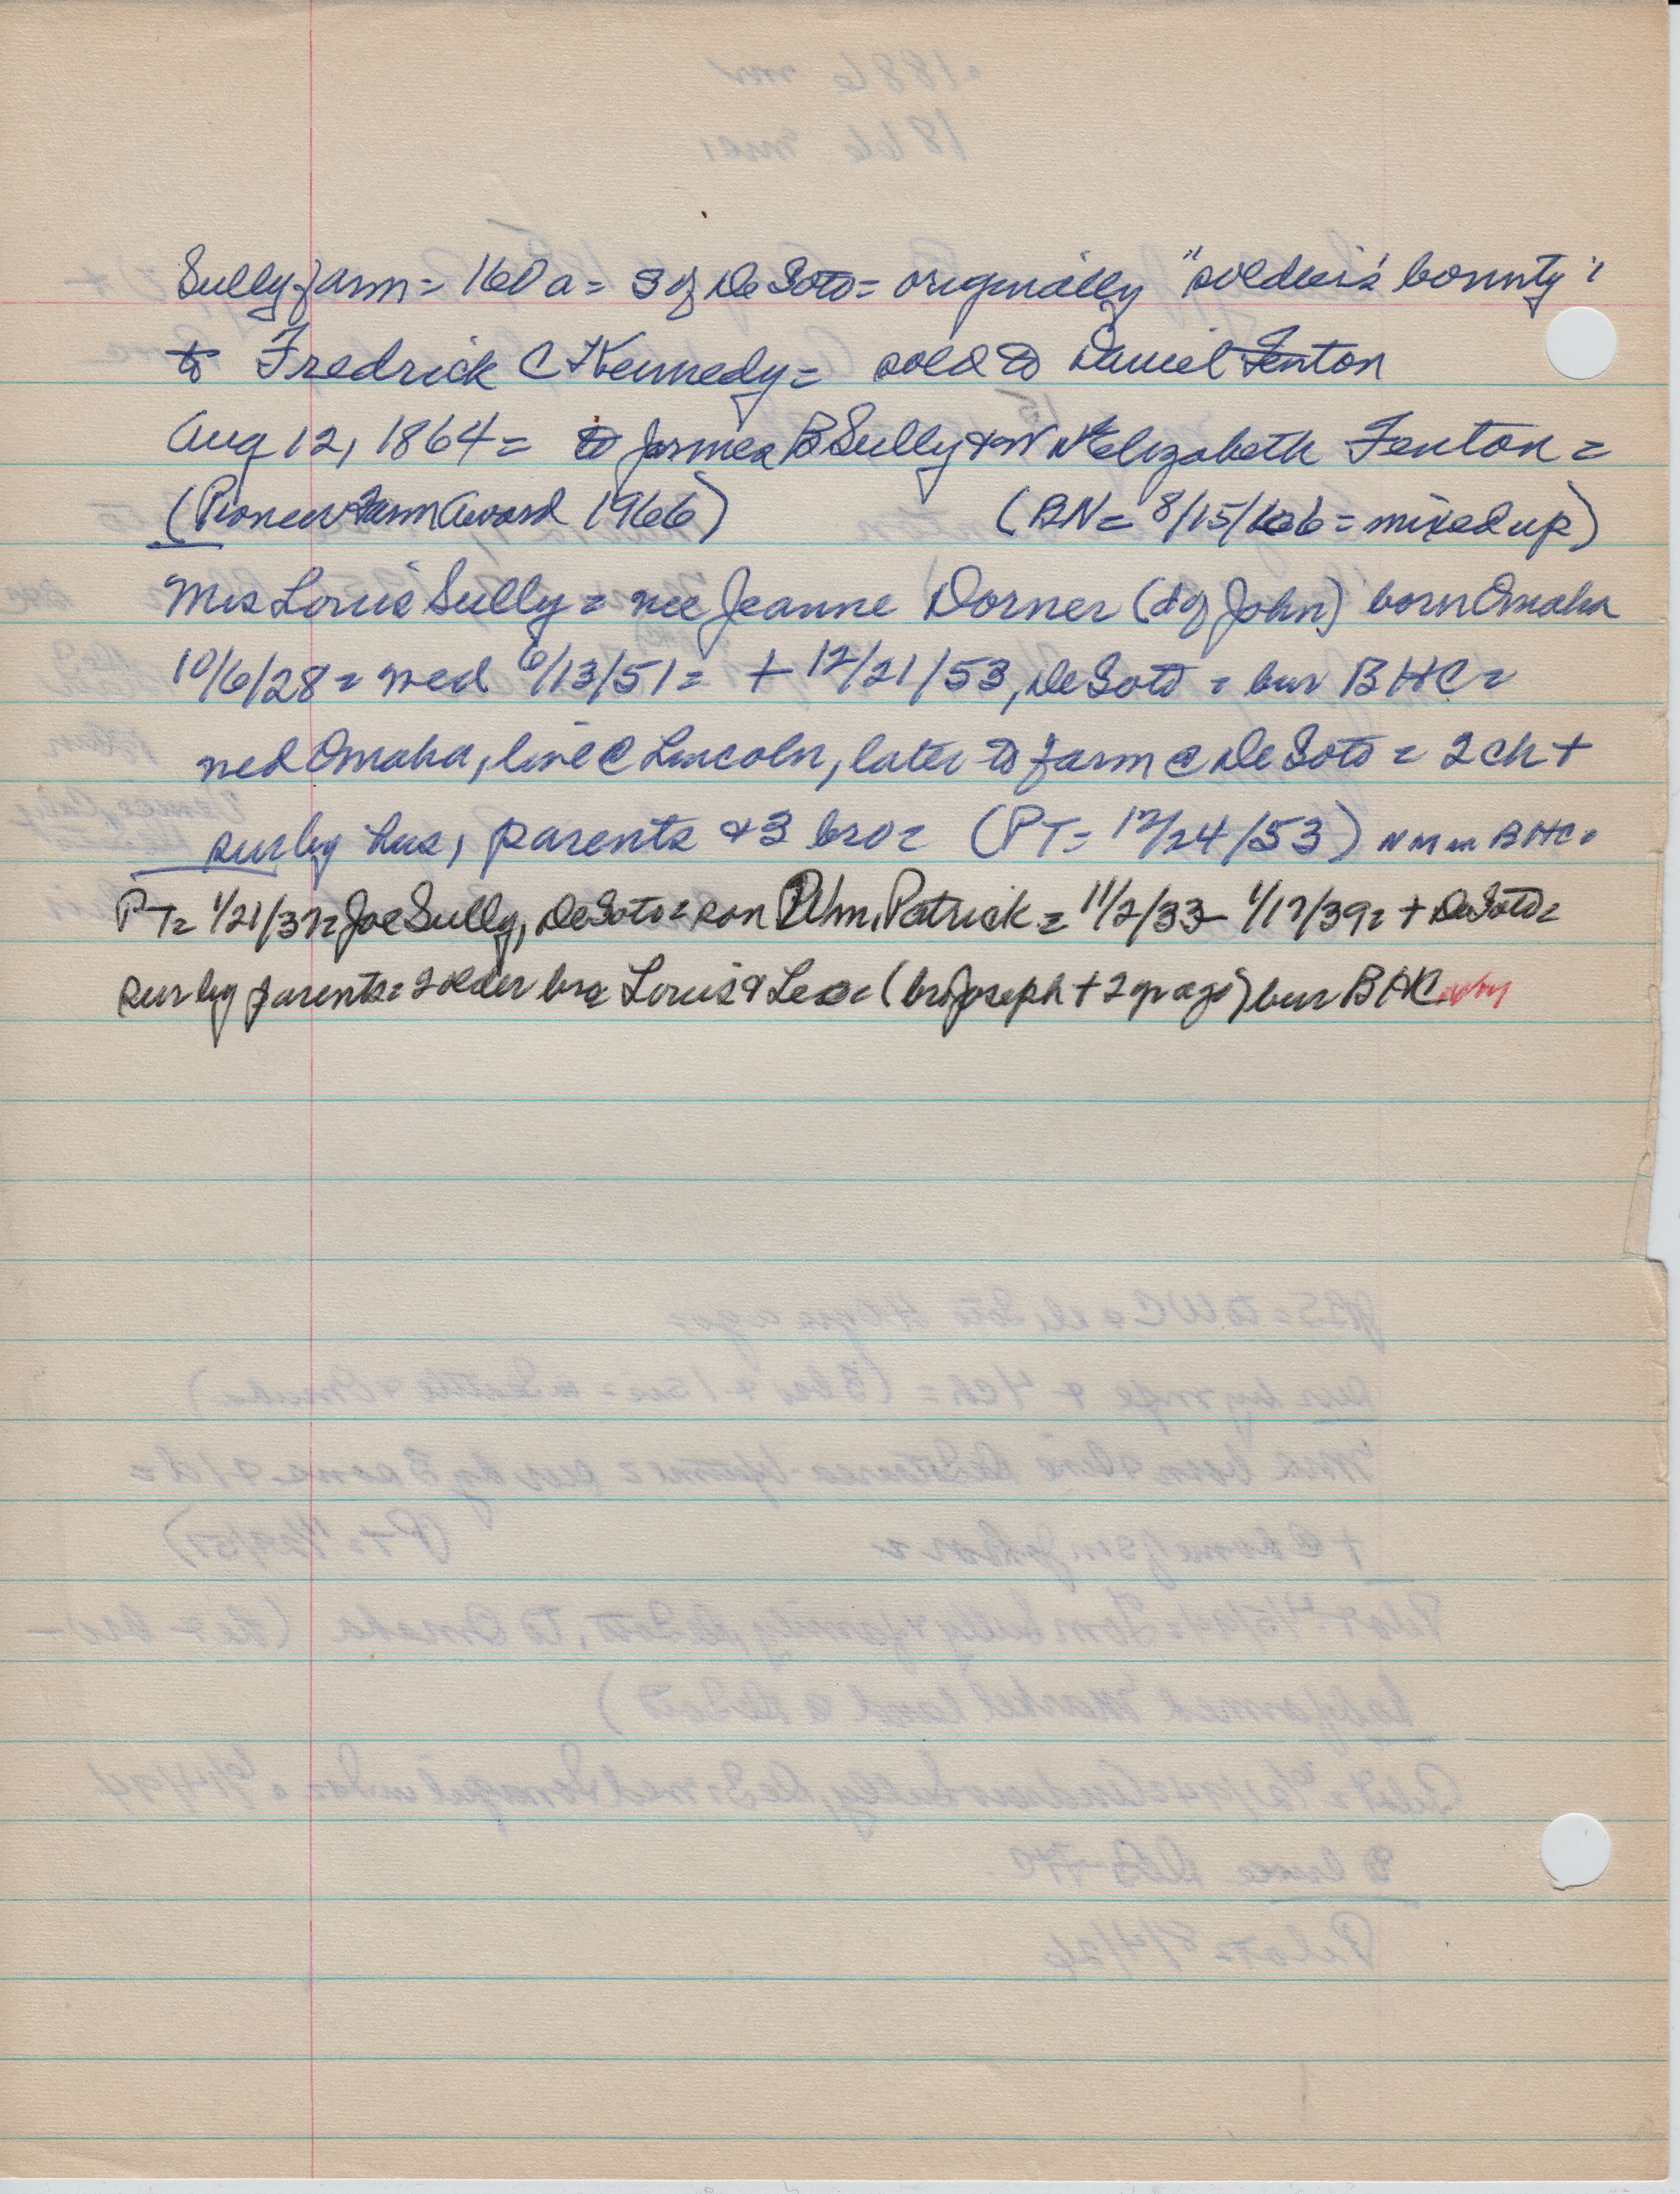 Sully farm = 160 a = S of De Soto = originally "soldier's bounty"
to Fredrick C Kennedy = sold to Daniel Fenton
Aug 12, 1864 = to James B Sully & W Elizabeth Fenton =
(Pioneer Farm Award 1966) (BN = 8/15/66 = mixed up)
Mrs Louis Sully = nee Jeanne Dorner (d of John) born Omaha
10/6/28 = med 6/13/51 = + 12/21/53, De Soto = bur BHC =
med Omaha, live @ Lincoln, later to farm @ De Soto = 2 ch +
sur by hus, parents & 3 bro = (PT = 12/24/53) BHC =
PT = Joe Sully, De Soto = son Wm. Patrick = 11/2/33 - 1/17/39 = + De Soto =
sur by parents = 2 older bro = Louis & Leo = (bro Joseph + 2 yr ago) bur BHC